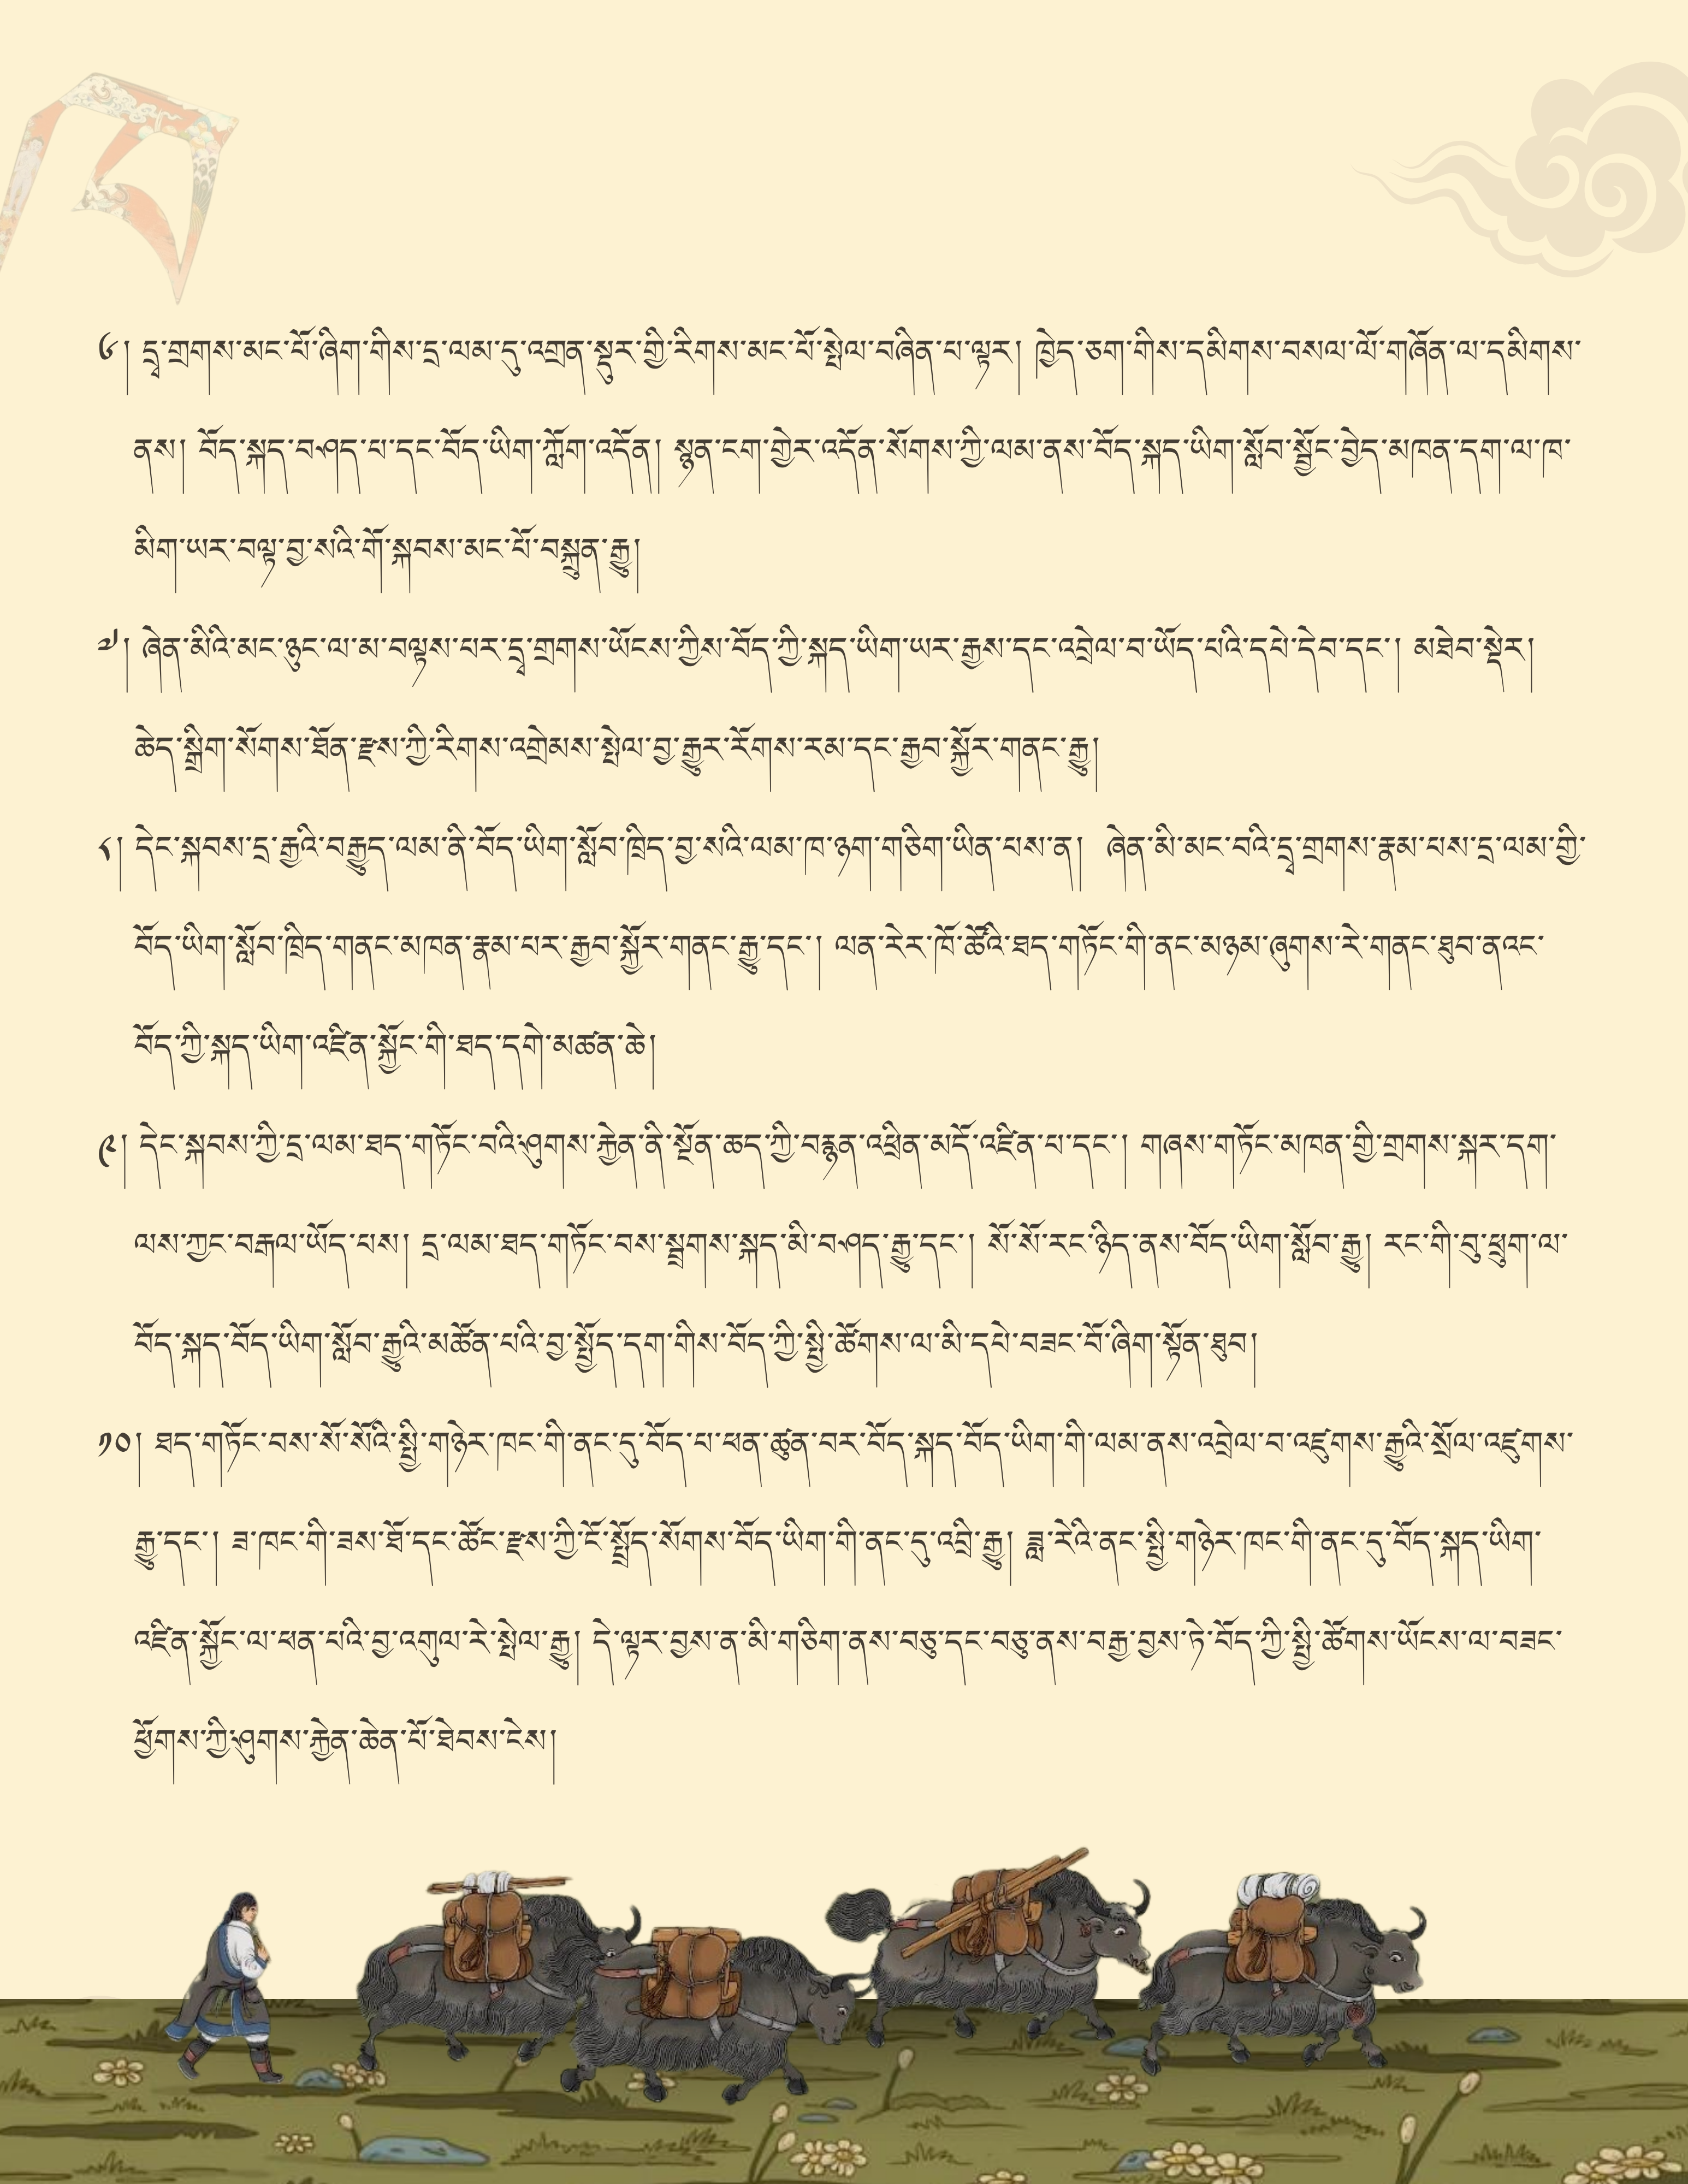 ༦། དྲྭ་གྲགས་མང་པོ་ཞིག་གིས་དྲ་ལམ་དུ་འགྲན་སྡུར་གྱི་རིགས་མང་པོ་སྤེལ་བཞིན་པ་ལྟར། ཁྱེད་ཅག་གིས་དམིགས་བསལ་ལོ་གཞོན་ལ་དམིགས་
ནས། བོད་སྐད་བཤད་པ་དང་བོད་ཡིག་ཀློག་འདོན། སྙན་ངག་གྱེར་འདོན་སོགས་ཀྱི་ལམ་ནས་བོད་སྐད་ཡིག་སློབ་སྦྱོང་བྱེད་མཁན་དག་ལ་ཁ་
མིག་ཡར་བལྟ་བྱ་སའི་གོ་སྐབས་མང་པོ་བསྐྲུན་རྒྱུ།
༧། ཞེན་མིའི་མང་ཉུང་ལ་མ་བལྟས་པར་དྲྭ་གྲགས་ཡོངས་ཀྱིས་བོད་ཀྱི་སྐད་ཡིག་ཡར་རྒྱས་དང་འབྲེལ་བ་ཡོད་པའི་དཔེ་དེབ་དང་། མཐེབ་སྡེར།
ཆེད་སྒྲིག་སོགས་ཐོན་རྫས་ཀྱི་རིགས་འགྲེམས་སྤེལ་བྱ་རྒྱུར་རོགས་རམ་དང་རྒྱབ་སྐྱོར་གནང་རྒྱུ།
༨། དེང་སྐབས་དྲ་རྒྱའི་བརྒྱུད་ལམ་ནི་བོད་ཡིག་སློབ་ཁྲིད་བྱ་སའི་ལམ་ཁ་ཉག་གཅིག་ཡིན་པས་ན།  ཞེན་མི་མང་བའི་དྲྭ་གྲགས་རྣམ་པས་དྲ་ལམ་གྱི་
བོད་ཡིག་སློབ་ཁྲིད་གནང་མཁན་རྣམ་པར་རྒྱབ་སྐྱོར་གནང་རྒྱུ་དང་། ལན་རེར་ཁོ་ཚོའི་ཐད་གཏོང་གི་ནང་མཉམ་ཞུགས་རེ་གནང་ཐུབ་ནའང་
བོད་ཀྱི་སྐད་ཡིག་འཛིན་སྐྱོང་གི་ཐད་དགེ་མཚན་ཆེ།
༩། དེང་སྐབས་ཀྱི་དྲ་ལམ་ཐད་གཏོང་བའི་ཤུགས་རྐྱེན་ནི་སྔོན་ཆད་ཀྱི་བརྙན་འཕྲིན་མདོ་འཛིན་པ་དང་། གཞས་གཏོང་མཁན་གྱི་གྲགས་སྐར་དག་
ལས་ཀྱང་བརྒལ་ཡོད་པས། དྲ་ལམ་ཐད་གཏོང་བས་སྦྲགས་སྐད་མི་བཤད་རྒྱུ་དང་། སོ་སོ་རང་ཉིད་ནས་བོད་ཡིག་སློབ་རྒྱུ། རང་གི་བུ་ཕྲུག་ལ་
བོད་སྐད་བོད་ཡིག་སློབ་རྒྱུའི་མཚོན་པའི་བྱ་སྤྱོད་དག་གིས་བོད་ཀྱི་སྤྱི་ཚོགས་ལ་མི་དཔེ་བཟང་པོ་ཞིག་སྟོན་ཐུབ།
༡༠། ཐད་གཏོང་བས་སོ་སོའི་སྤྱི་གཉེར་ཁང་གི་ནང་དུ་བོད་པ་ཕན་ཚུན་བར་བོད་སྐད་བོད་ཡིག་གི་ལམ་ནས་འབྲེལ་བ་འཛུགས་རྒྱུའི་སྲོལ་འཛུགས་
རྒྱུ་དང་། ཟ་ཁང་གི་ཟས་ཐོ་དང་ཚོང་རྫས་ཀྱི་ངོ་སྤྲོད་སོགས་བོད་ཡིག་གི་ནང་དུ་འབྲི་རྒྱུ། ཟླ་རེའི་ནང་སྤྱི་གཉེར་ཁང་གི་ནང་དུ་བོད་སྐད་ཡིག་
འཛིན་སྐྱོང་ལ་ཕན་པའི་བྱ་འགུལ་རེ་སྤེལ་རྒྱུ། དེ་ལྟར་བྱས་ན་མི་གཅིག་ནས་བཅུ་དང་བཅུ་ནས་བརྒྱ་བྱས་ཏེ་བོད་ཀྱི་སྤྱི་ཚོགས་ཡོངས་ལ་བཟང་
ཕྱོགས་ཀྱི་ཤུགས་རྐྱེན་ཆེན་པོ་ཐེབས་ངེས།